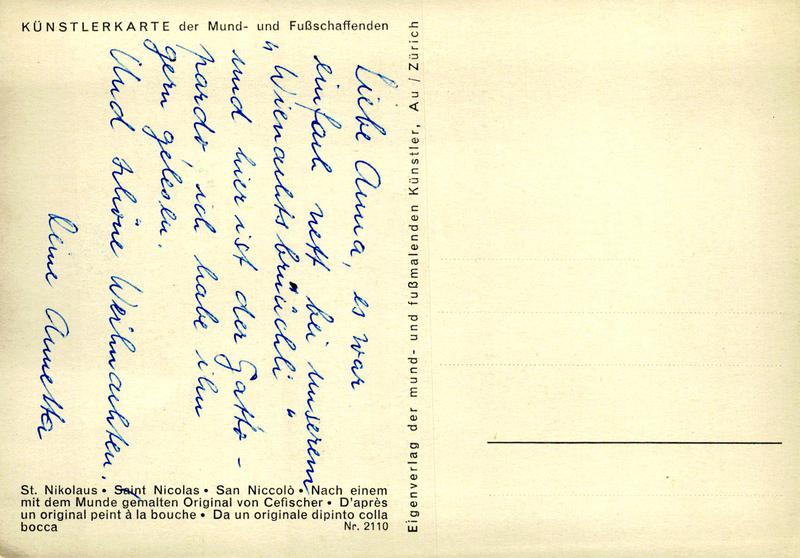 KÜNSTLERKARTE der Mund- und Fußschaffenden
Liebe Anna, es war
einfach nett bei unserem
"Wienachtsbrüüchli"
und hier ist der Gatto-
pardo, ich habe ihn
gern gelesen.
Und schöne Weihnachten.
Deine Annetta
St. Nikolaus • Saint Nicolas • San Niccolò • Nach einem
mit dem Munde gemalten Original von Cefischer • D'après
un original peint à la bouche • Da un originale dipinto colla
bocca
Nr. 2110
Eigenverlag der mund- und fußmalenden Künstler, Au / Zürich